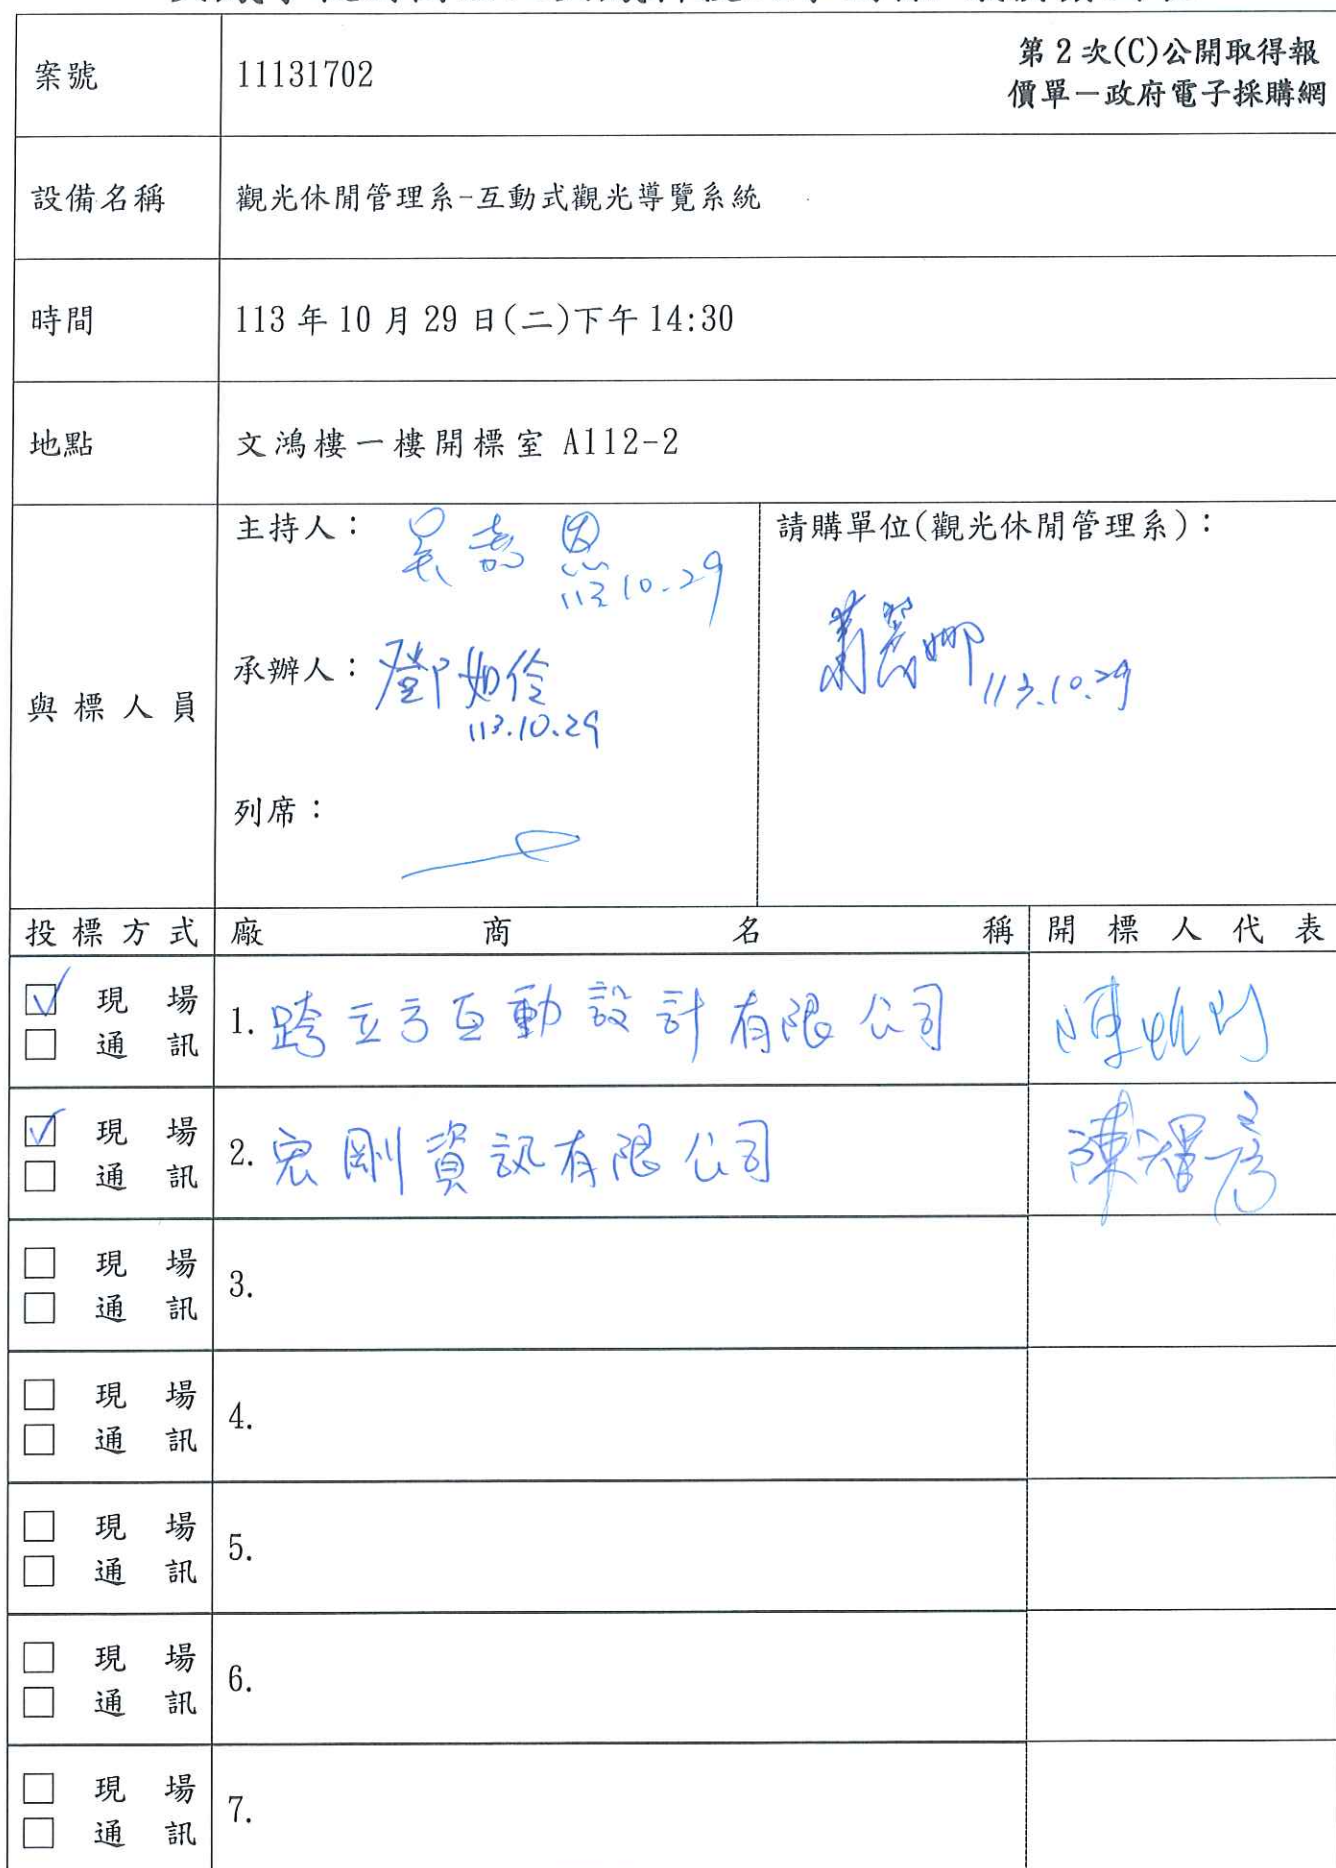 案號 11131702 第2次(C)公開取得報
價單－政府電子採購網
設備名稱 觀光休閒管理系-互動式觀光導覽系統
時間 113年10月29日(二)下午14:30
地點 文鴻樓一樓開標室 A112-2
與標人員
主持人：
113.10.29
承辦人：鄧如伶
113.10.29
列席：
請購單位(觀光休閒管理系)：
蕭麗娜 113.10.29
投標方式 廠商名稱 開標人代表
☑ 現場
☐ 通訊
1. 跨立方互動設計有限公司
☑ 現場
☐ 通訊
2. 宏剛資訊有限公司
☐ 現場
☐ 通訊
3.
☐ 現場
☐ 通訊
4.
☐ 現場
☐ 通訊
5.
☐ 現場
☐ 通訊
6.
☐ 現場
☐ 通訊
7.